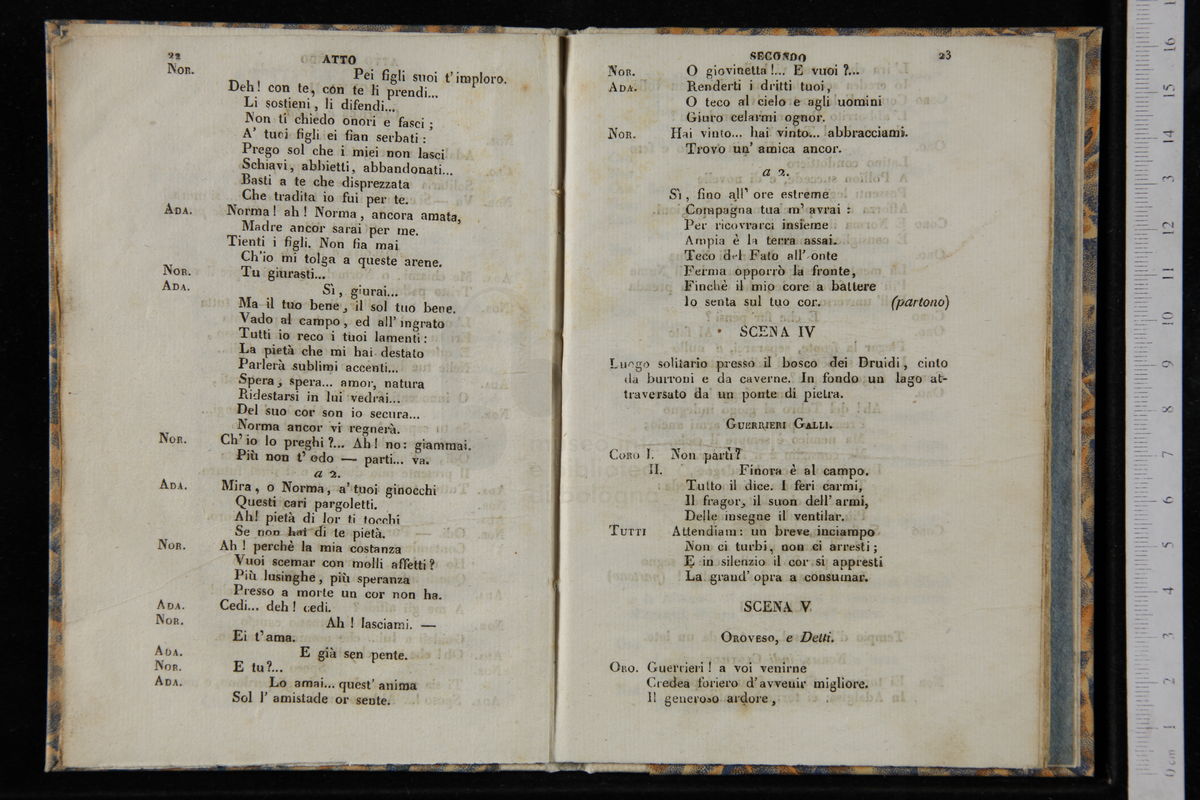 22
ATTO
NOR. Pei figli suoi t'imploro.
Deh! con te, con te li prendi...
Li sostieni, li difendi...
Non ti chiedo onori e fasci;
A' tuoi figli ei fian serbati:
Prego sol che i miei non lasci
Schiavi, abbietti, abbandonati...
Basti a te che disprezzata
Che tradita io fui per te.
ADA. Norma! ah! Norma, ancora amata,
Madre ancor sarai per me.
Tienti i figli. Non fia mai
Ch'io mi tolga a queste arene.
NOR. Tu giurasti...
ADA. Sì, giurai...
Ma il tuo bene, il sol tuo bene.
Vado al campo, ed all'ingrato
Tutti io reco i tuoi lamenti:
La pietà che mi hai destato
Parlerà sublimi accenti...
Spera, spera... amor, natura
Ridestarsi in lui vedrai...
Del suo cor son io secura...
Norma ancor vi regnerà.
NOR. Ch'io lo preghi?... Ah! no: giammai.
Più non t'odo — parti... va.
a 2.
ADA. Mira, o Norma, a' tuoi ginocchi
Questi cari pargoletti.
Ah! pietà di lor ti tocchi
Se non hai di te pietà.
NOR. Ah! perchè la mia costanza
Vuoi scemar con molli affetti?
Più lusinghe, più speranza
Presso a morte un cor non ha.
ADA. Cedi... deh! cedi.
NOR. Ah! lasciami. —
Ei t'ama.
ADA. E già sen pente.
NOR. E tu?...
ADA. Lo amai... quest' anima
Sol l' amistade or sente.
SECONDO
23
NOR. O giovinetta!... E vuoi?...
ADA. Renderti i dritti tuoi,
O teco al cielo e agli uomini
Giuro celarmi ognor.
NOR. Hai vinto... hai vinto... abbracciami.
Trovo un' amica ancor.
a 2.
Sì, fino all' ore estreme
Compagna tua m' avrai:
Per ricovrarci insieme
Ampia è la terra assai.
Teco del Fato all' onte
Ferma opporrò la fronte,
Finchè il mio core a battere
Io senta sul tuo cor. (partono)
SCENA IV
Luogo solitario presso il bosco dei Druidi, cinto
da burroni e da caverne. In fondo un lago at-
traversato da un ponte di pietra.
GUERRIERI GALLI.
CORO I. Non partì?
II. Finora è al campo.
Tutto il dice. I feri carmi,
Il fragor, il suon dell' armi,
Delle insegne il ventilar.
TUTTI Attendiam: un breve inciampo
Non ci turbi, non ci arresti;
E in silenzio il cor si appresti
La grand' opra a consumar.
SCENA V
OROVESO, e Detti.
ORO. Guerrieri! a voi venirne
Credea foriero d'avvenir migliore.
Il generoso ardore,